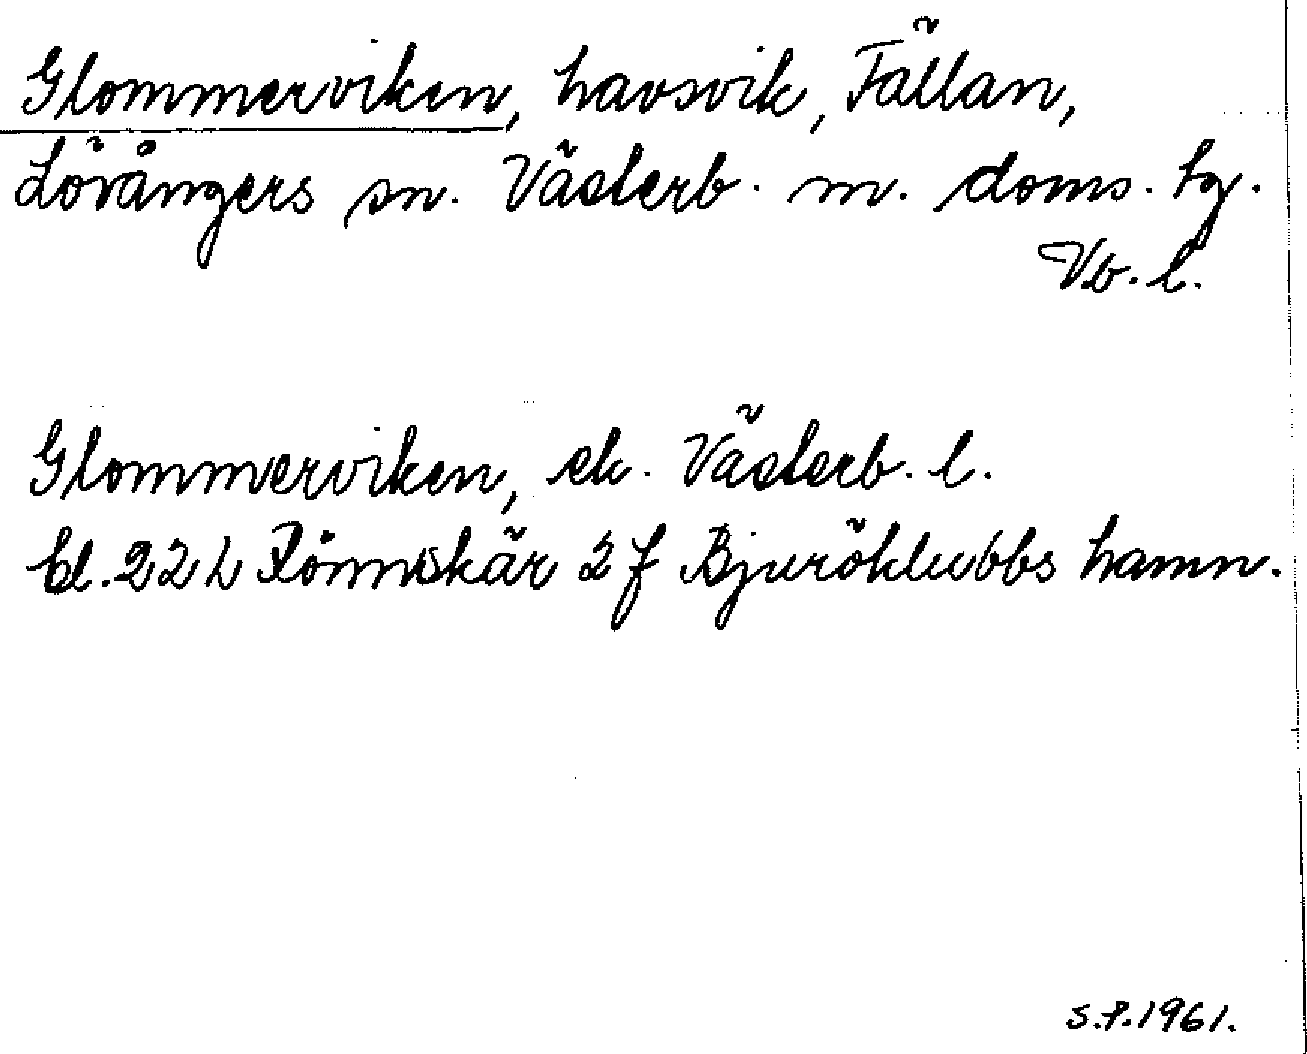 Glommerviken, havsvik, Fällan,
Lövångers sn. Västerb. m. doms. tg.
Vb. l.
Glommerviken, ek. Västerb. l.
bl. 22 L Rönnskär 2 f Bjuröklubbs hamn.
S.P. 1961.